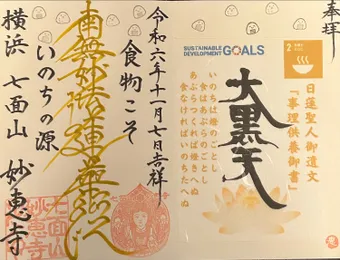 奉拝
2
SUSTAINABLE DEVELOPMENT GOALS
日蓮聖人御遺文
『事理供養御書』
大黒天
いのちは燈のごとし
食はあぶらのごとし
あぶらつくれば燈きへぬ
食なければいのちたへぬ
令和六年十一月七日吉祥
食物こそ
いのちの源
南無妙法蓮華経
横浜 七面山 妙恵寺
七面山
妙恵寺